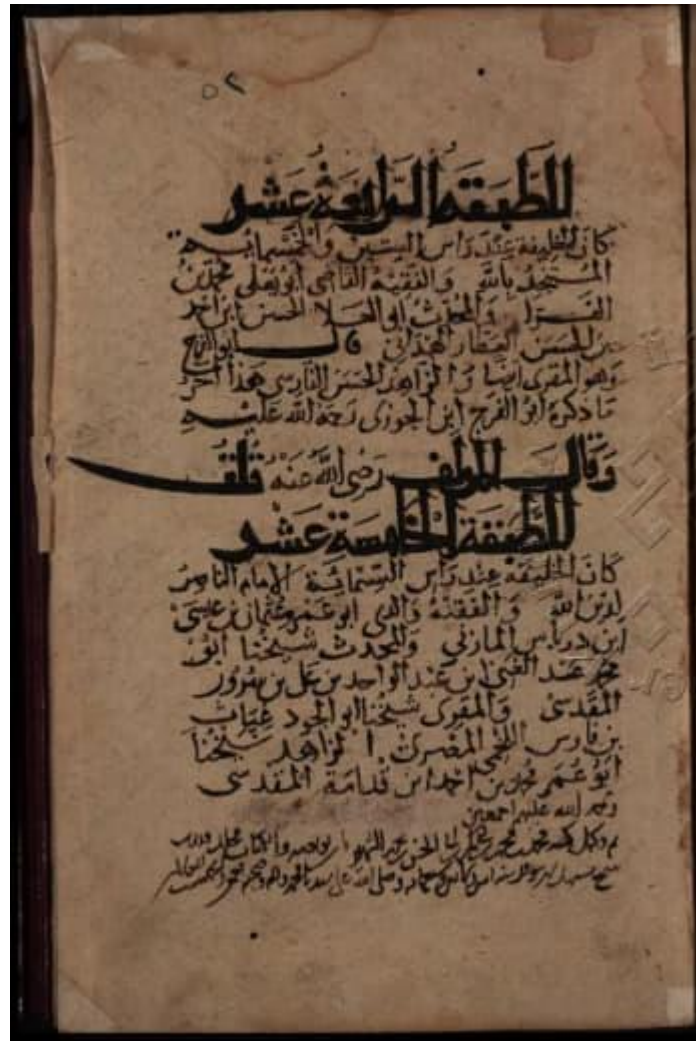 ٥٢
الطبقة الرابعة عشر
كان الخليفة عند راس الستين والخمسمائـــة
المستنجد بالله والفقيه القاضي ابو يعلى محمد بن
الفـــرا والمحدث ابو العـــلا الحسن ابن احمد
بن الحسن العطار الهمذاني قالـــ ابو الفرج
وهو المقرى ايضا والزاهد الحسن الفارسي هذا آخر
ما ذكره ابو الفرج ابن الجوزي رحمة الله عليـــه
وقال المولف رضي الله عنه قلت
الطبقة الخامسة عشر
كان الخليفة عند راس الستمائـــة الامام الناصر
لدين الله والفقيه والدي ابو عمرو عثمان بن عيسى
ابن درباس الماراني والمحدث شيخنا ابو
محمد عبد الغني ابن عبد الواحد بن علي بن سرور
المقدسي والمقرى شيخنا ابو الجود غياث
بن فارس اللخمي المصري الزاهد شيخنا
ابو عمر محمد بن احمد ابن قدامة المقدسي
رحمة الله عليهم اجمعين